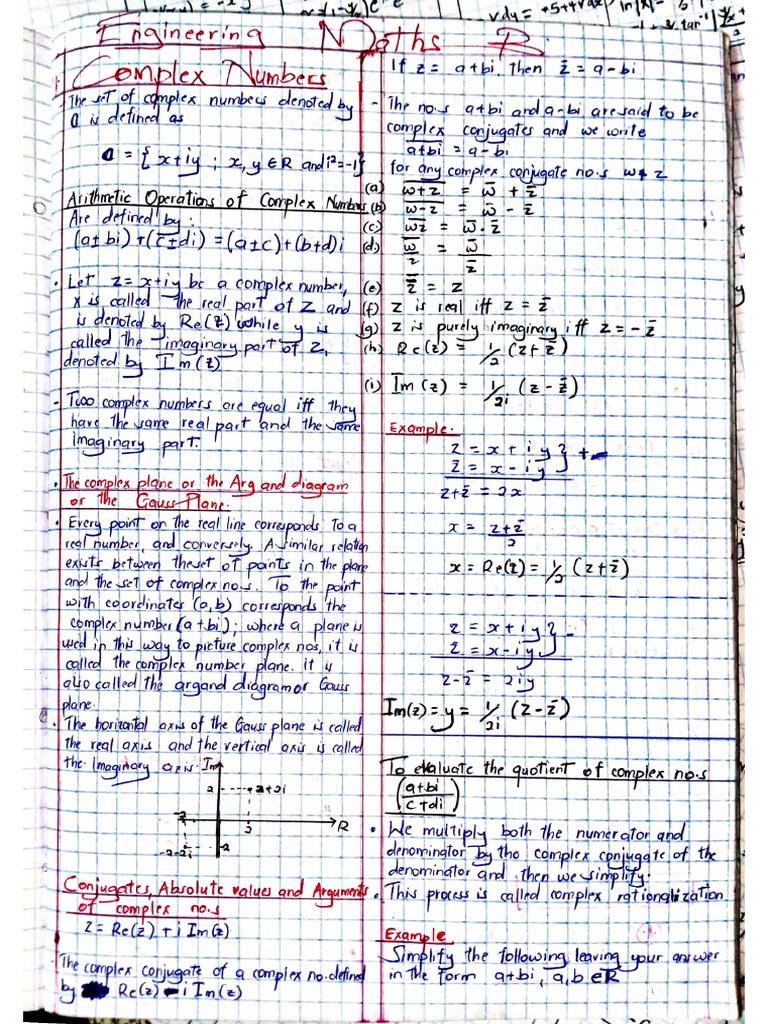 Engineering Maths B.
Complex Numbers
The set of complex numbers denoted by
ℂ is defined as
ℂ = { x+iy ; x, y ∈ R and i² = -1}
Arithmetic Operations of Complex Numbers
Are defined by:
(a±bi)+(c±di) = (a±c)+(b+d)i
• Let z=x+iy be a complex number,
x is called the real part of Z and
is denoted by Re(z) while y is
called the imaginary part of Z,
denoted by Im(z)
- Two complex numbers are equal iff they
have the same real part and the same
imaginary part.
• The complex plane or the Arg and diagram
or the Gauss Plane.
• Every point on the real line corresponds to a
real number, and conversely. A similar relation
exists between the set of points in the plane
and the set of complex no.s. To the point
with coordinates (a,b) corresponds the
complex number (a+bi); where a plane is
used in this way to picture complex nos, it is
called the complex number plane. It is
also called the argand diagram or Gauss
plane.
• The horizontal axis of the Gauss plane is called
the real axis and the vertical axis is called
the Imaginary axis.
Im
2
2+2i
-2
2
R
-2-2i
-2
Conjugates, Absolute values and Arguments
of complex no.s
Z = Re(z) + i Im(z)
- The complex conjugate of a complex no. defined
by Re(z) - i Im(z)
If z = a+bi, then z̄ = a-bi
- The no.s a+bi and a-bi are said to be
complex conjugates and we write
a+bi = a-bi
for any complex conjugate no.s w & z
(a) w+z = w̄ + z̄
(b) w-z = w̄ - z̄
(c) wz = w̄ · z̄
(d) w = w̄
z̄
(e) z̄ = z
(f) z is real iff z = z̄
(g) z is purely imaginary iff z = -z̄
(h) Re(z) = 1/2 (z+z̄)
(i) Im(z) = 1/2i (z-z̄)
Example.
z = x+iy } +
z̄ = x-iy
z+z̄ = 2x
x = z+z̄
2
x = Re(z) = 1/2 (z+z̄)
z = x+iy } -
z̄ = x-iy
z-z̄ = 2iy
Im(z) = y = 1/2i (z-z̄)
To evaluate the quotient of complex no.s
(a+bi
c+di)
• We multiply both the numerator and
denominator by the complex conjugate of the
denominator and then we simplify.
• This process is called complex rationalization
Example
Simplify the following leaving your answer
in the form a+bi, a,b ∈ R